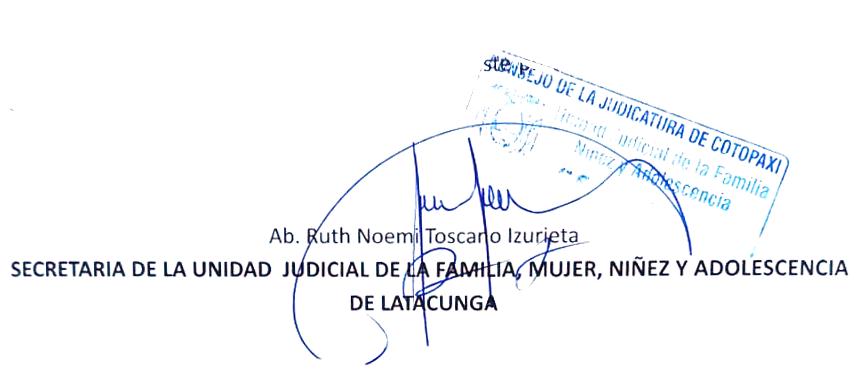 CONSEJO DE LA JUDICATURA DE COTOPAXI
Judicial de la Familia
Niñez y Adolescencia
Ab. Ruth Noemi Toscano Izurieta
SECRETARIA DE LA UNIDAD JUDICIAL DE LA FAMILIA, MUJER, NIÑEZ Y ADOLESCENCIA
DE LATACUNGA